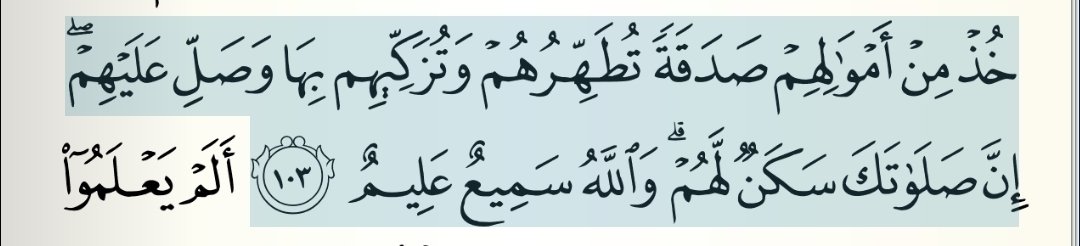 خُذۡ مِنۡ أَمۡوَٰلِهِمۡ صَدَقَةٗ تُطَهِّرُهُمۡ وَتُزَكِّيهِم بِهَا وَصَلِّ عَلَيۡهِمۡۖ
إِنَّ صَلَوٰتَكَ سَكَنٞ لَّهُمۡۗ وَٱللَّهُ سَمِيعٌ عَلِيمٌ ١٠٣ أَلَمۡ يَعۡلَمُوٓاْ